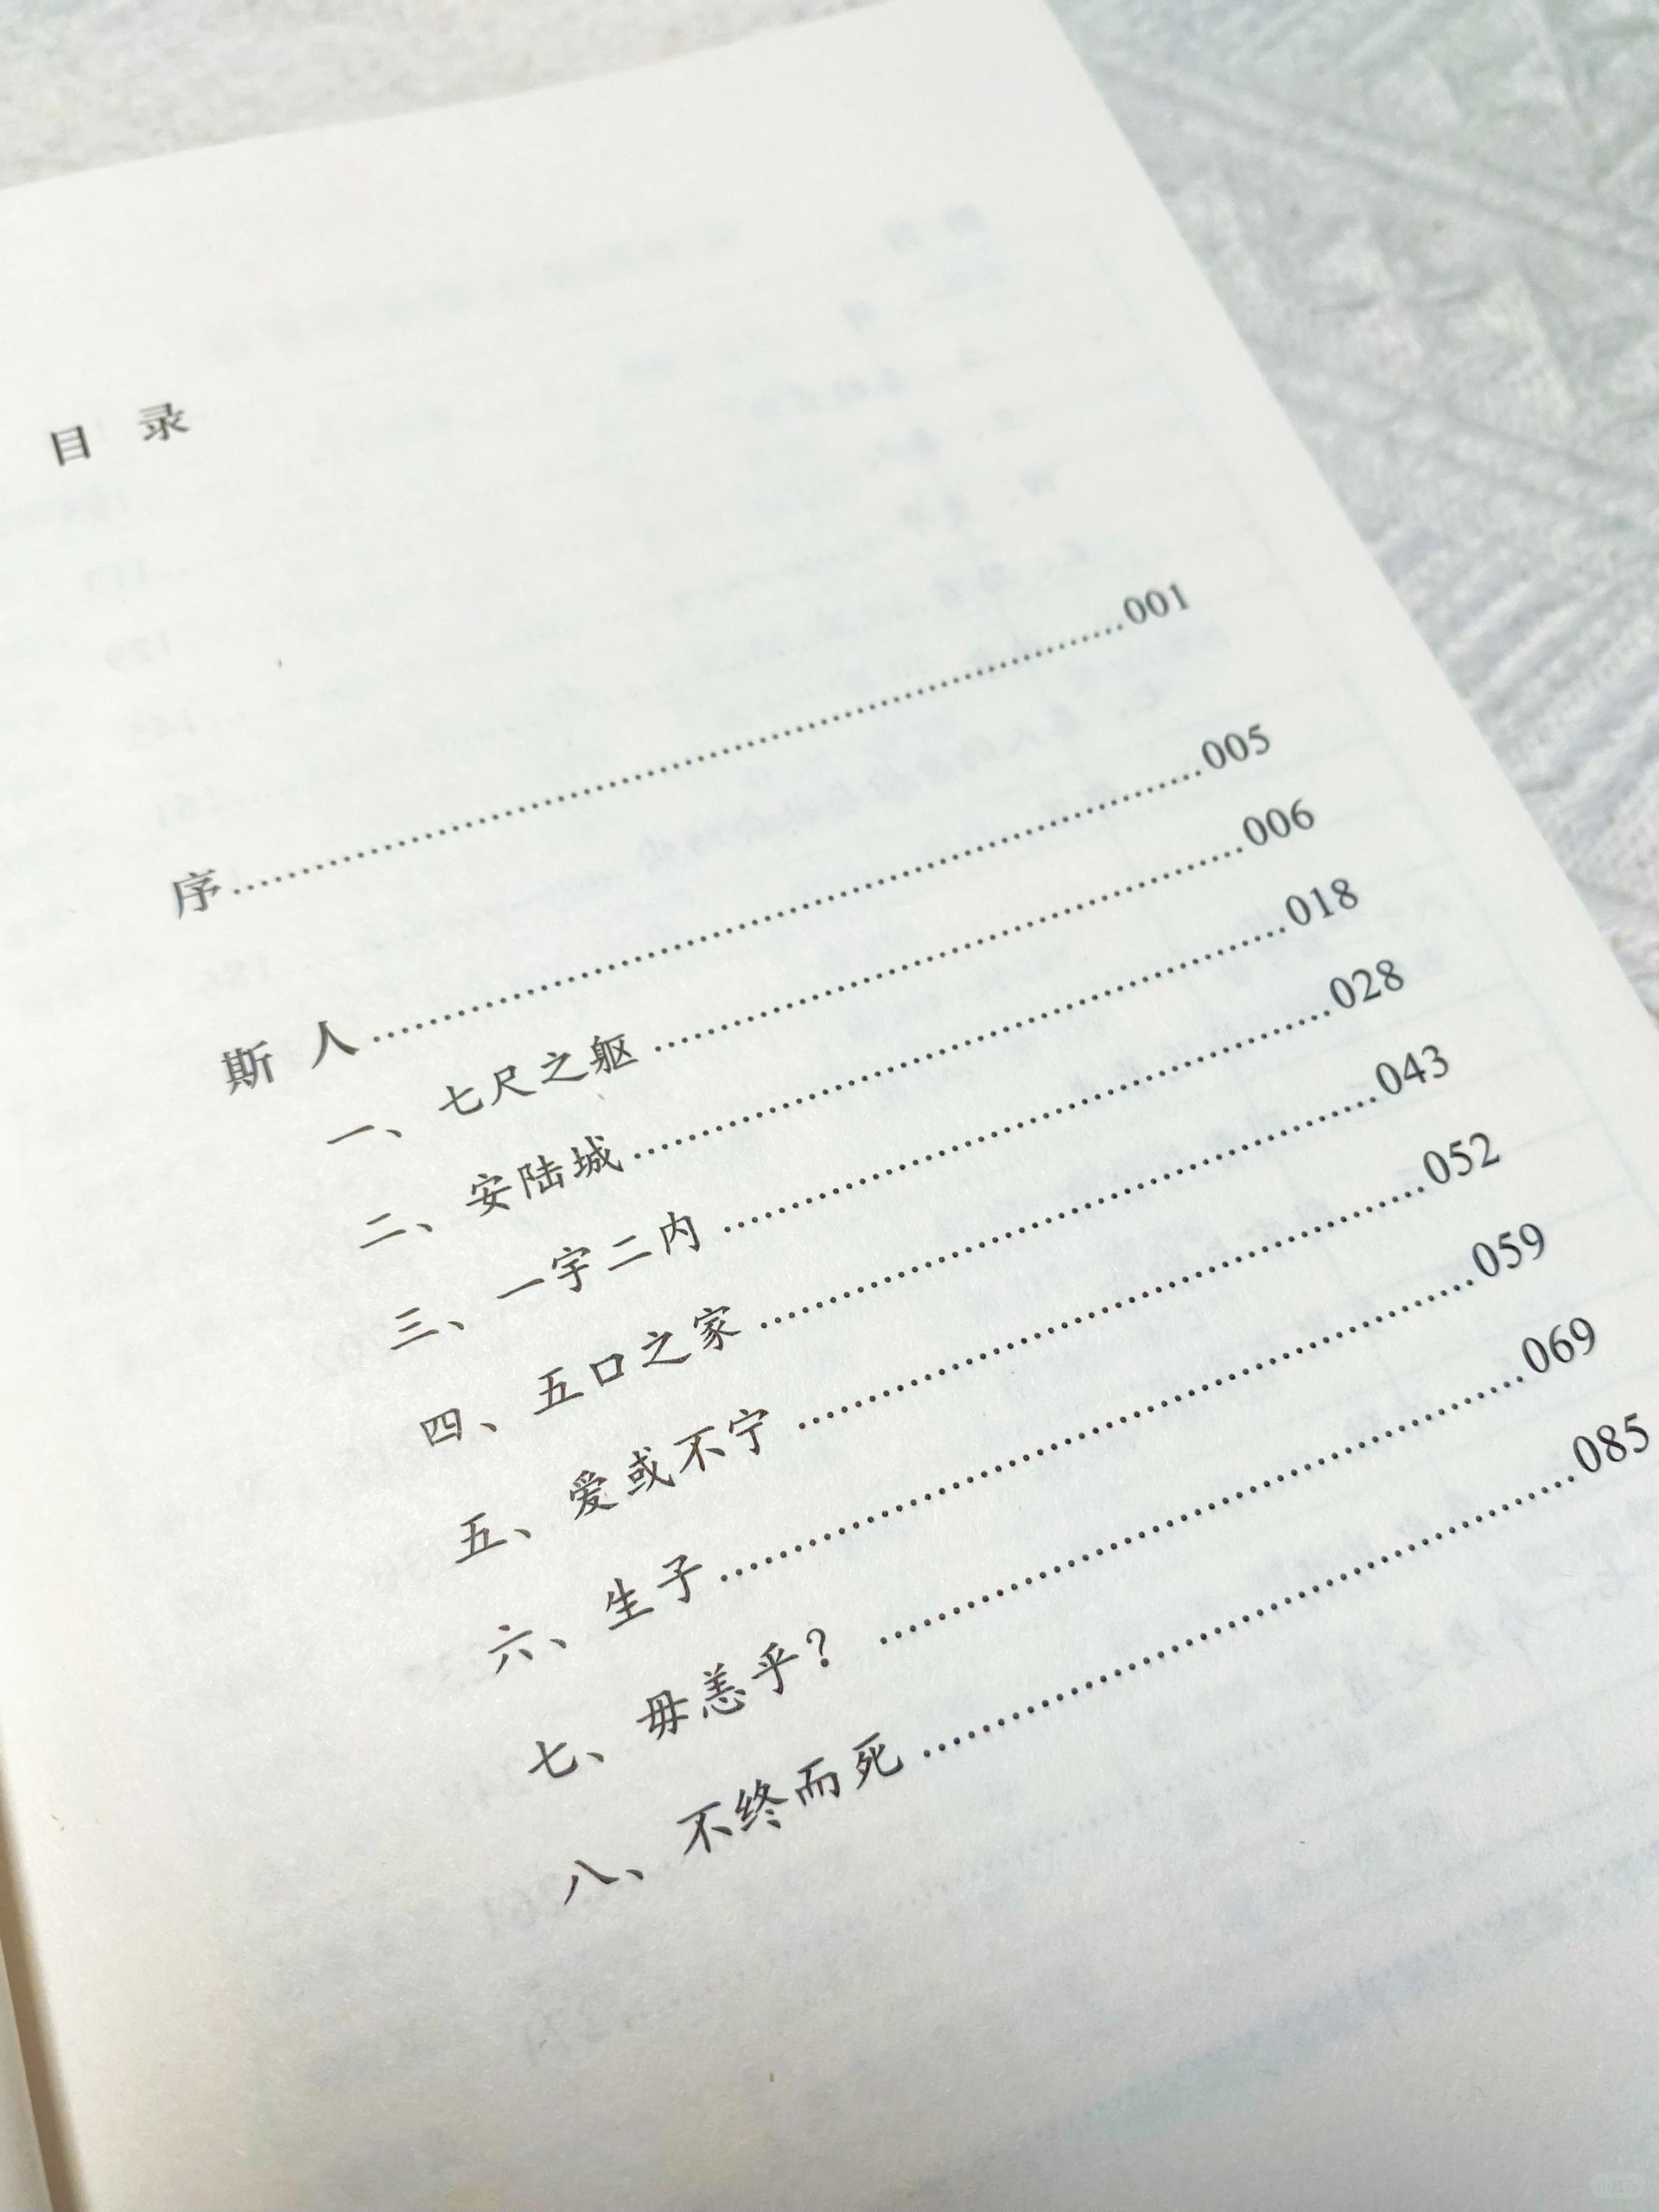 目 录
序……001
斯 人……005
一、七尺之躯……006
二、安陆城……018
三、一宇二内……028
四、五口之家……043
五、爱或不宁……052
六、生子……059
七、毋恙乎？……069
八、不终而死……085